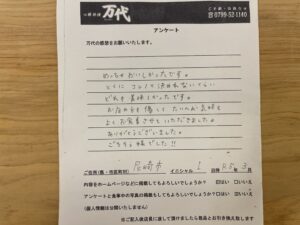 万代
ご予約・お問合せ
☎0799-52-1140
アンケート
万代の感想をお願いいたします。
めっちゃおいしかったです。
とくに コレ！て決めれないくらい
どれも美味しかったです。
お店の方も優しく たいへん気持ち
よくお食事させていただきました。
ありがとうございました。
ごちそう様でした!!
ご住所(県・市区町村) 尼崎市 イニシャル I 日時 R5年3月
内容をホームページなどに掲載してもよろしいでしょうか? はい いいえ
アンケートと食事中の写真の掲載もよろしいでしょうか? はい いいえ
(個人情報は公開いたしません)
※ご記入後店員に渡して頂けましたら粗品とお引き換え致します